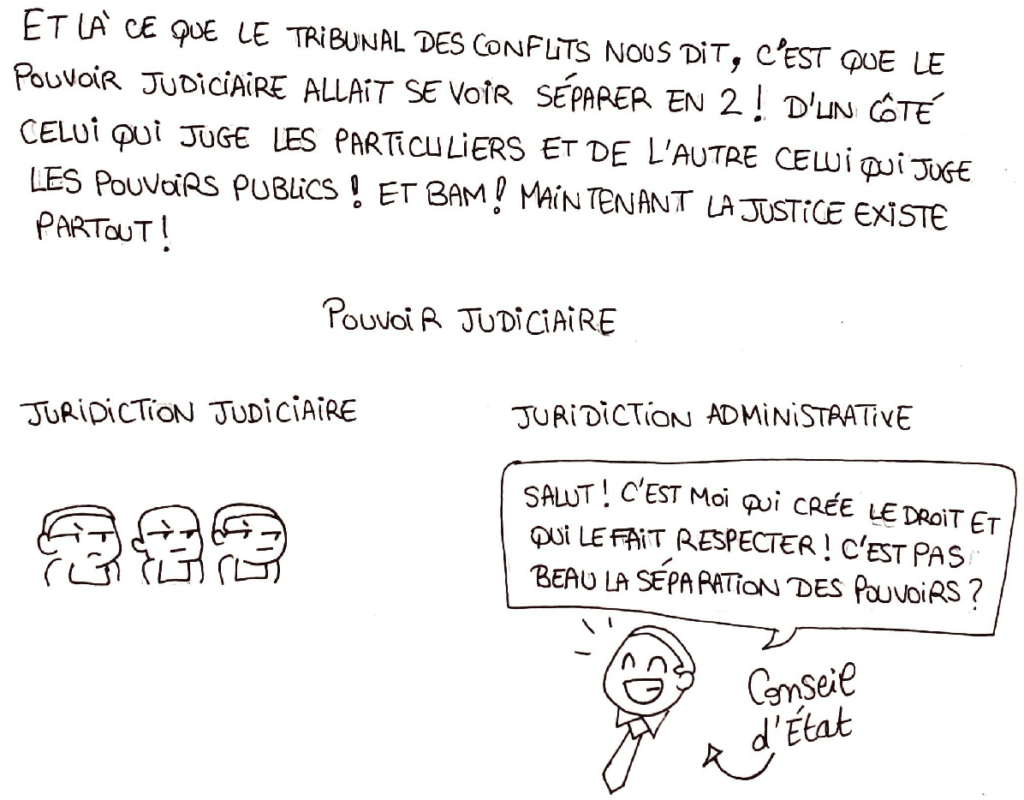 ET LÀ CE QUE LE TRIBUNAL DES CONFLITS NOUS DIT, C'EST QUE LE
POUVOIR JUDICIAIRE ALLAIT SE VOIR SÉPARER EN 2 ! D'UN CÔTÉ
CELUI QUI JUGE LES PARTICULIERS ET DE L'AUTRE CELUI QUI JUGE
LES POUVOIRS PUBLICS ! ET BAM ! MAINTENANT LA JUSTICE EXISTE
PARTOUT !
POUVOIR JUDICIAIRE
JURIDICTION JUDICIAIRE
JURIDICTION ADMINISTRATIVE
SALUT ! C'EST MOI QUI CRÉE LE DROIT ET
QUI LE FAIT RESPECTER ! C'EST PAS
BEAU LA SÉPARATION DES POUVOIRS ?
Conseil
d'État